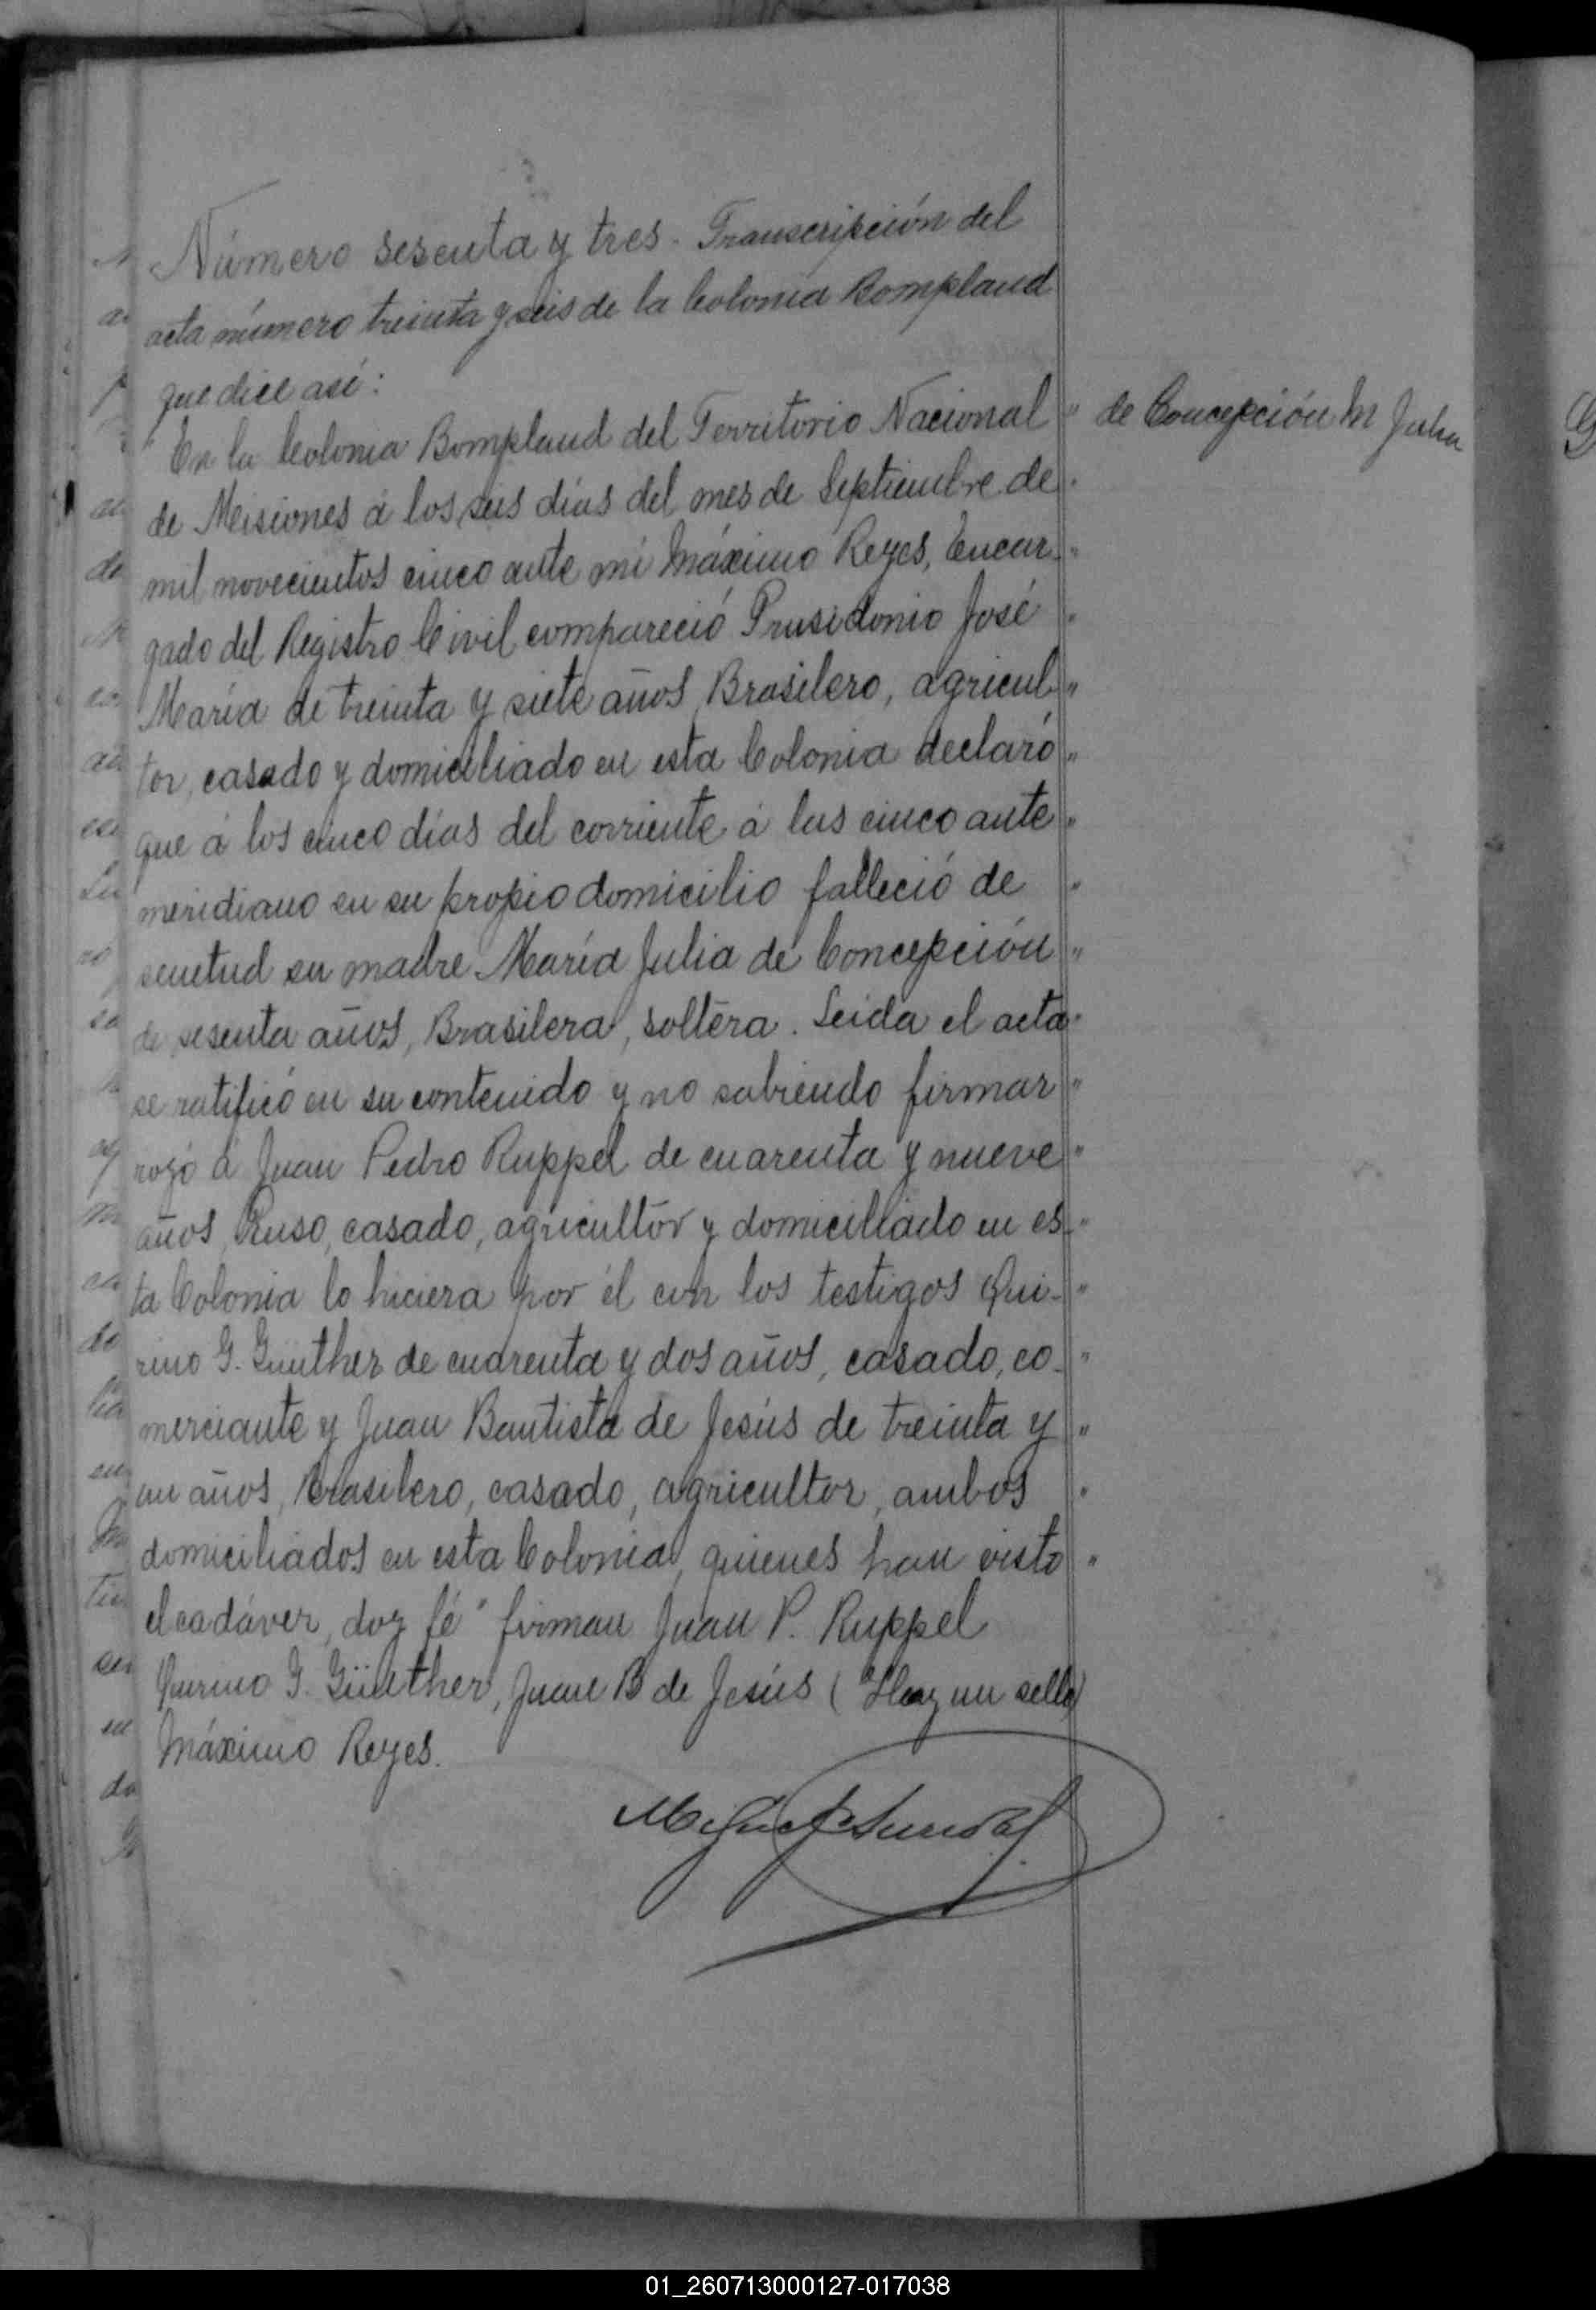 Número sesenta y tres - Transcripción del
acta número treinta y seis de la Colonia Bompland
que dice así:
"En la Colonia Bompland del Territorio Nacional "
de Concepción M Julia
de Misiones á los seis días del mes de Septiembre de "
mil novecientos cinco ante mi Máximo Reyes, Encar- "
gado del Registro Civil compareció Prusidonio José "
María de treinta y siete años, Brasilero, agricul- "
tor, casado y domiciliado en esta Colonia declaró "
que á los cinco días del corriente á las cinco ante "
meridiano en su propio domicilio falleció de "
senetud su madre María Julia de Concepción "
de sesenta años, Brasilera, soltera. Leida el acta "
se ratificó en su contenido y no sabiendo firmar "
rogó á Juan Pedro Ruppel de cuarenta y nueve "
años, Ruso, casado, agricultor y domiciliado en es- "
ta Colonia lo hiciera por él con los testigos Qui- "
rino G. Günther de cuarenta y dos años, casado, co- "
merciante y Juan Bautista de Jesús de treinta y "
un años, Brasilero, casado, agricultor, ambos "
domiciliados en esta Colonia, quienes han visto "
el cadáver, doy fé" firman Juan P. Ruppel
Quirino G. Günther, Juan B de Jesús (Hay un sello)
Máximo Reyes.
01_260713000127-017038